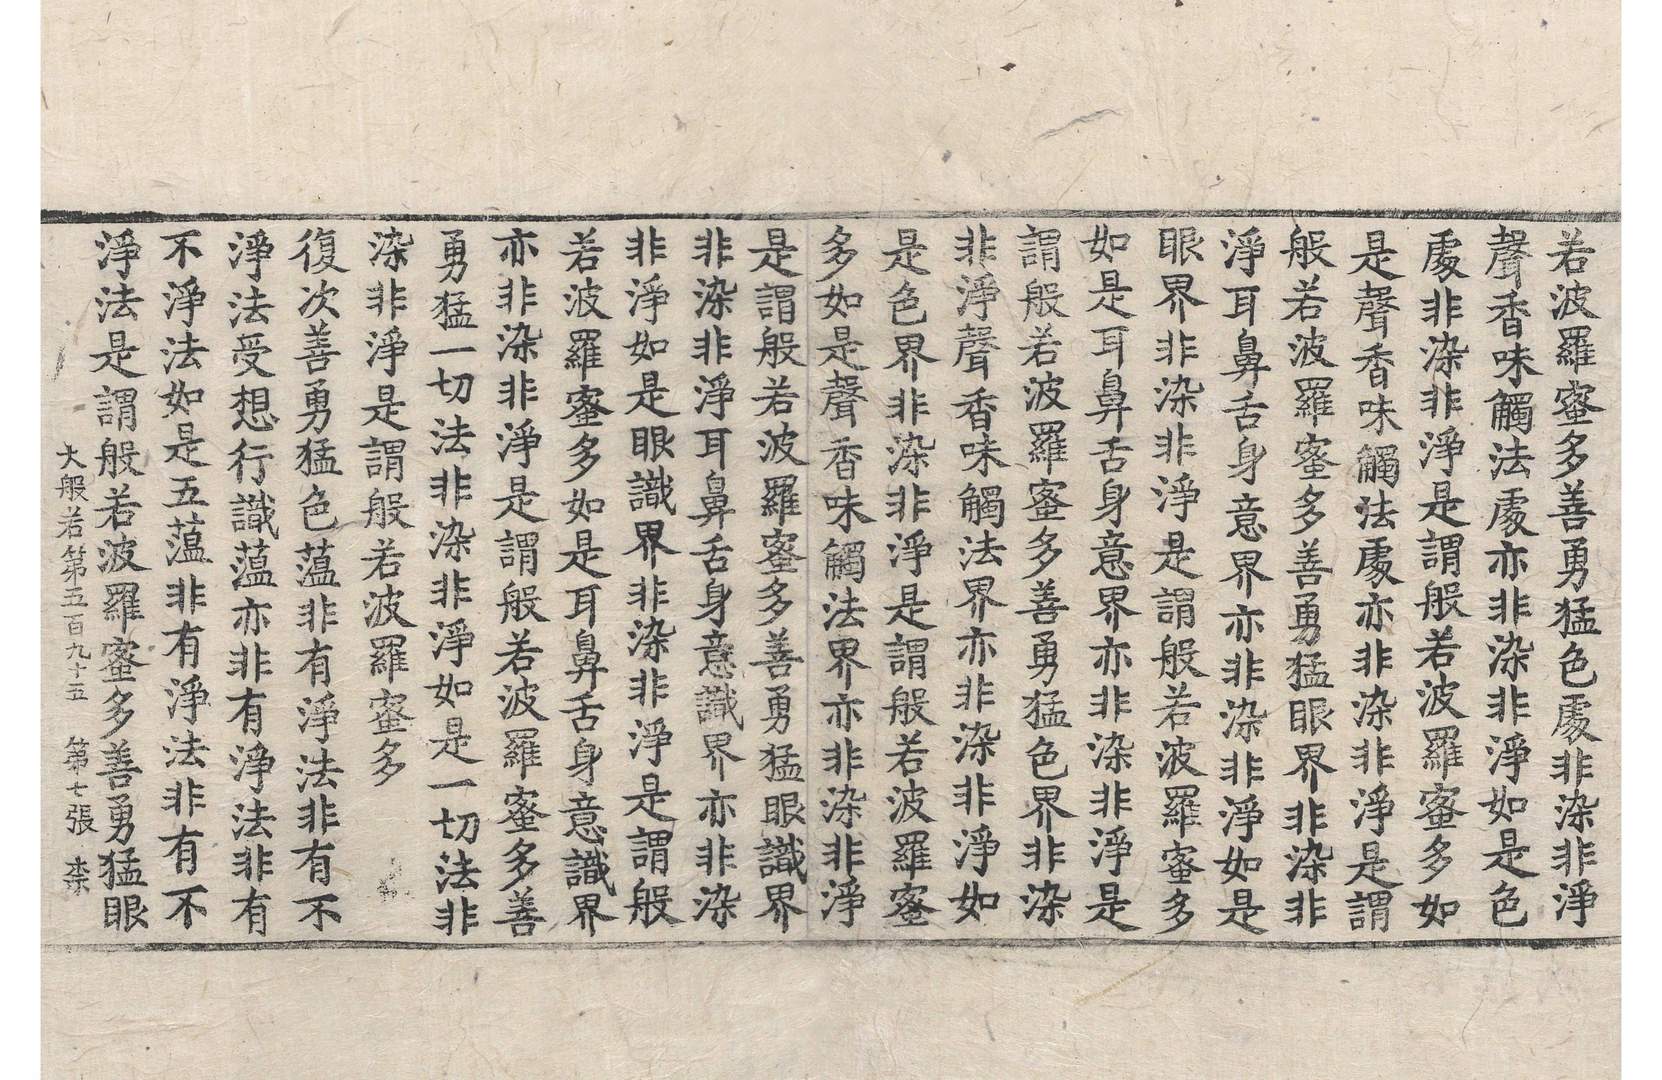 若波羅蜜多善勇猛色處非染非淨
聲香味觸法處亦非染非淨如是色
處非染非淨是謂般若波羅蜜多如
是聲香味觸法處亦非染非淨是謂
般若波羅蜜多善勇猛眼界非染非
淨耳鼻舌身意界亦非染非淨如是
眼界非染非淨是謂般若波羅蜜多
如是耳鼻舌身意界亦非染非淨是
謂般若波羅蜜多善勇猛色界非染
非淨聲香味觸法界亦非染非淨如
是色界非染非淨是謂般若波羅蜜
多如是聲香味觸法界亦非染非淨
是謂般若波羅蜜多善勇猛眼識界
非染非淨耳鼻舌身意識界亦非染
非淨如是眼識界非染非淨是謂般
若波羅蜜多如是耳鼻舌身意識界
亦非染非淨是謂般若波羅蜜多善
勇猛一切法非染非淨如是一切法非
染非淨是謂般若波羅蜜多
復次善勇猛色薀非有淨法非有不
淨法受想行識薀亦非有淨法非有
不淨法如是五薀非有淨法非有不
淨法是謂般若波羅蜜多善勇猛眼
大般若第五百九十五 第七張